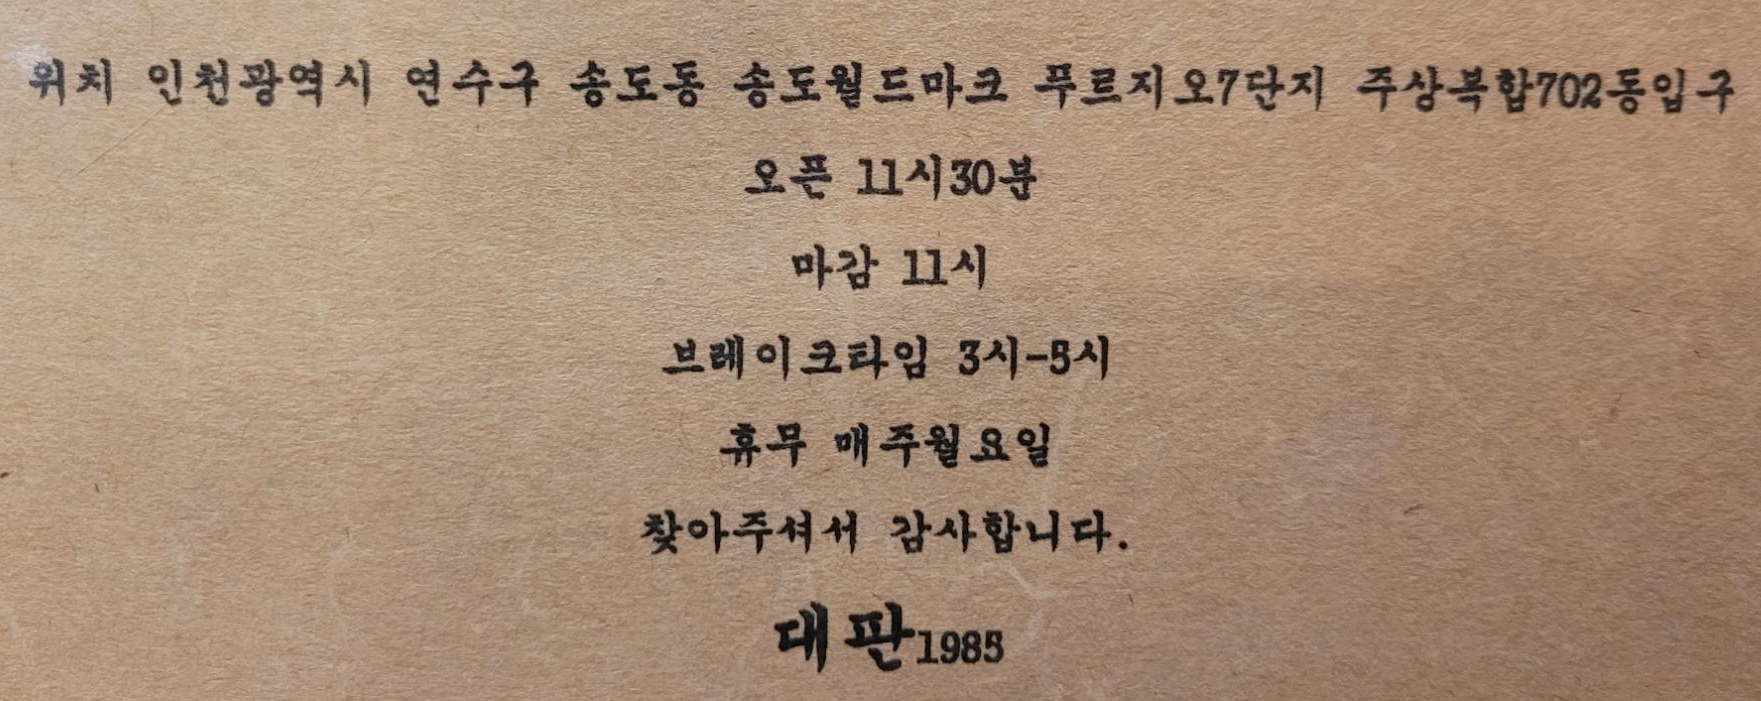 위치 인천광역시 연수구 송도동 송도월드마크 푸르지오7단지 주상복합702동입구
오픈 11시30분
마감 11시
브레이크타임 3시-5시
휴무 매주월요일
찾아주셔서 감사합니다.
대판1985